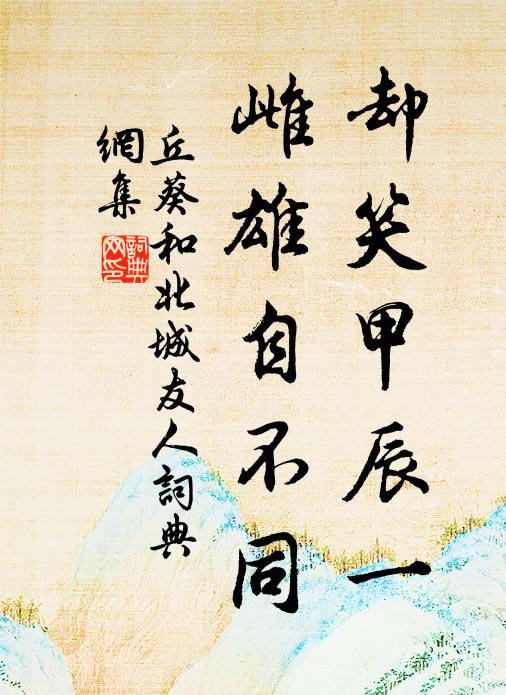 却笑甲辰一
雌雄自不同
丘葵和北城友人詞典
網集
詞典
网印